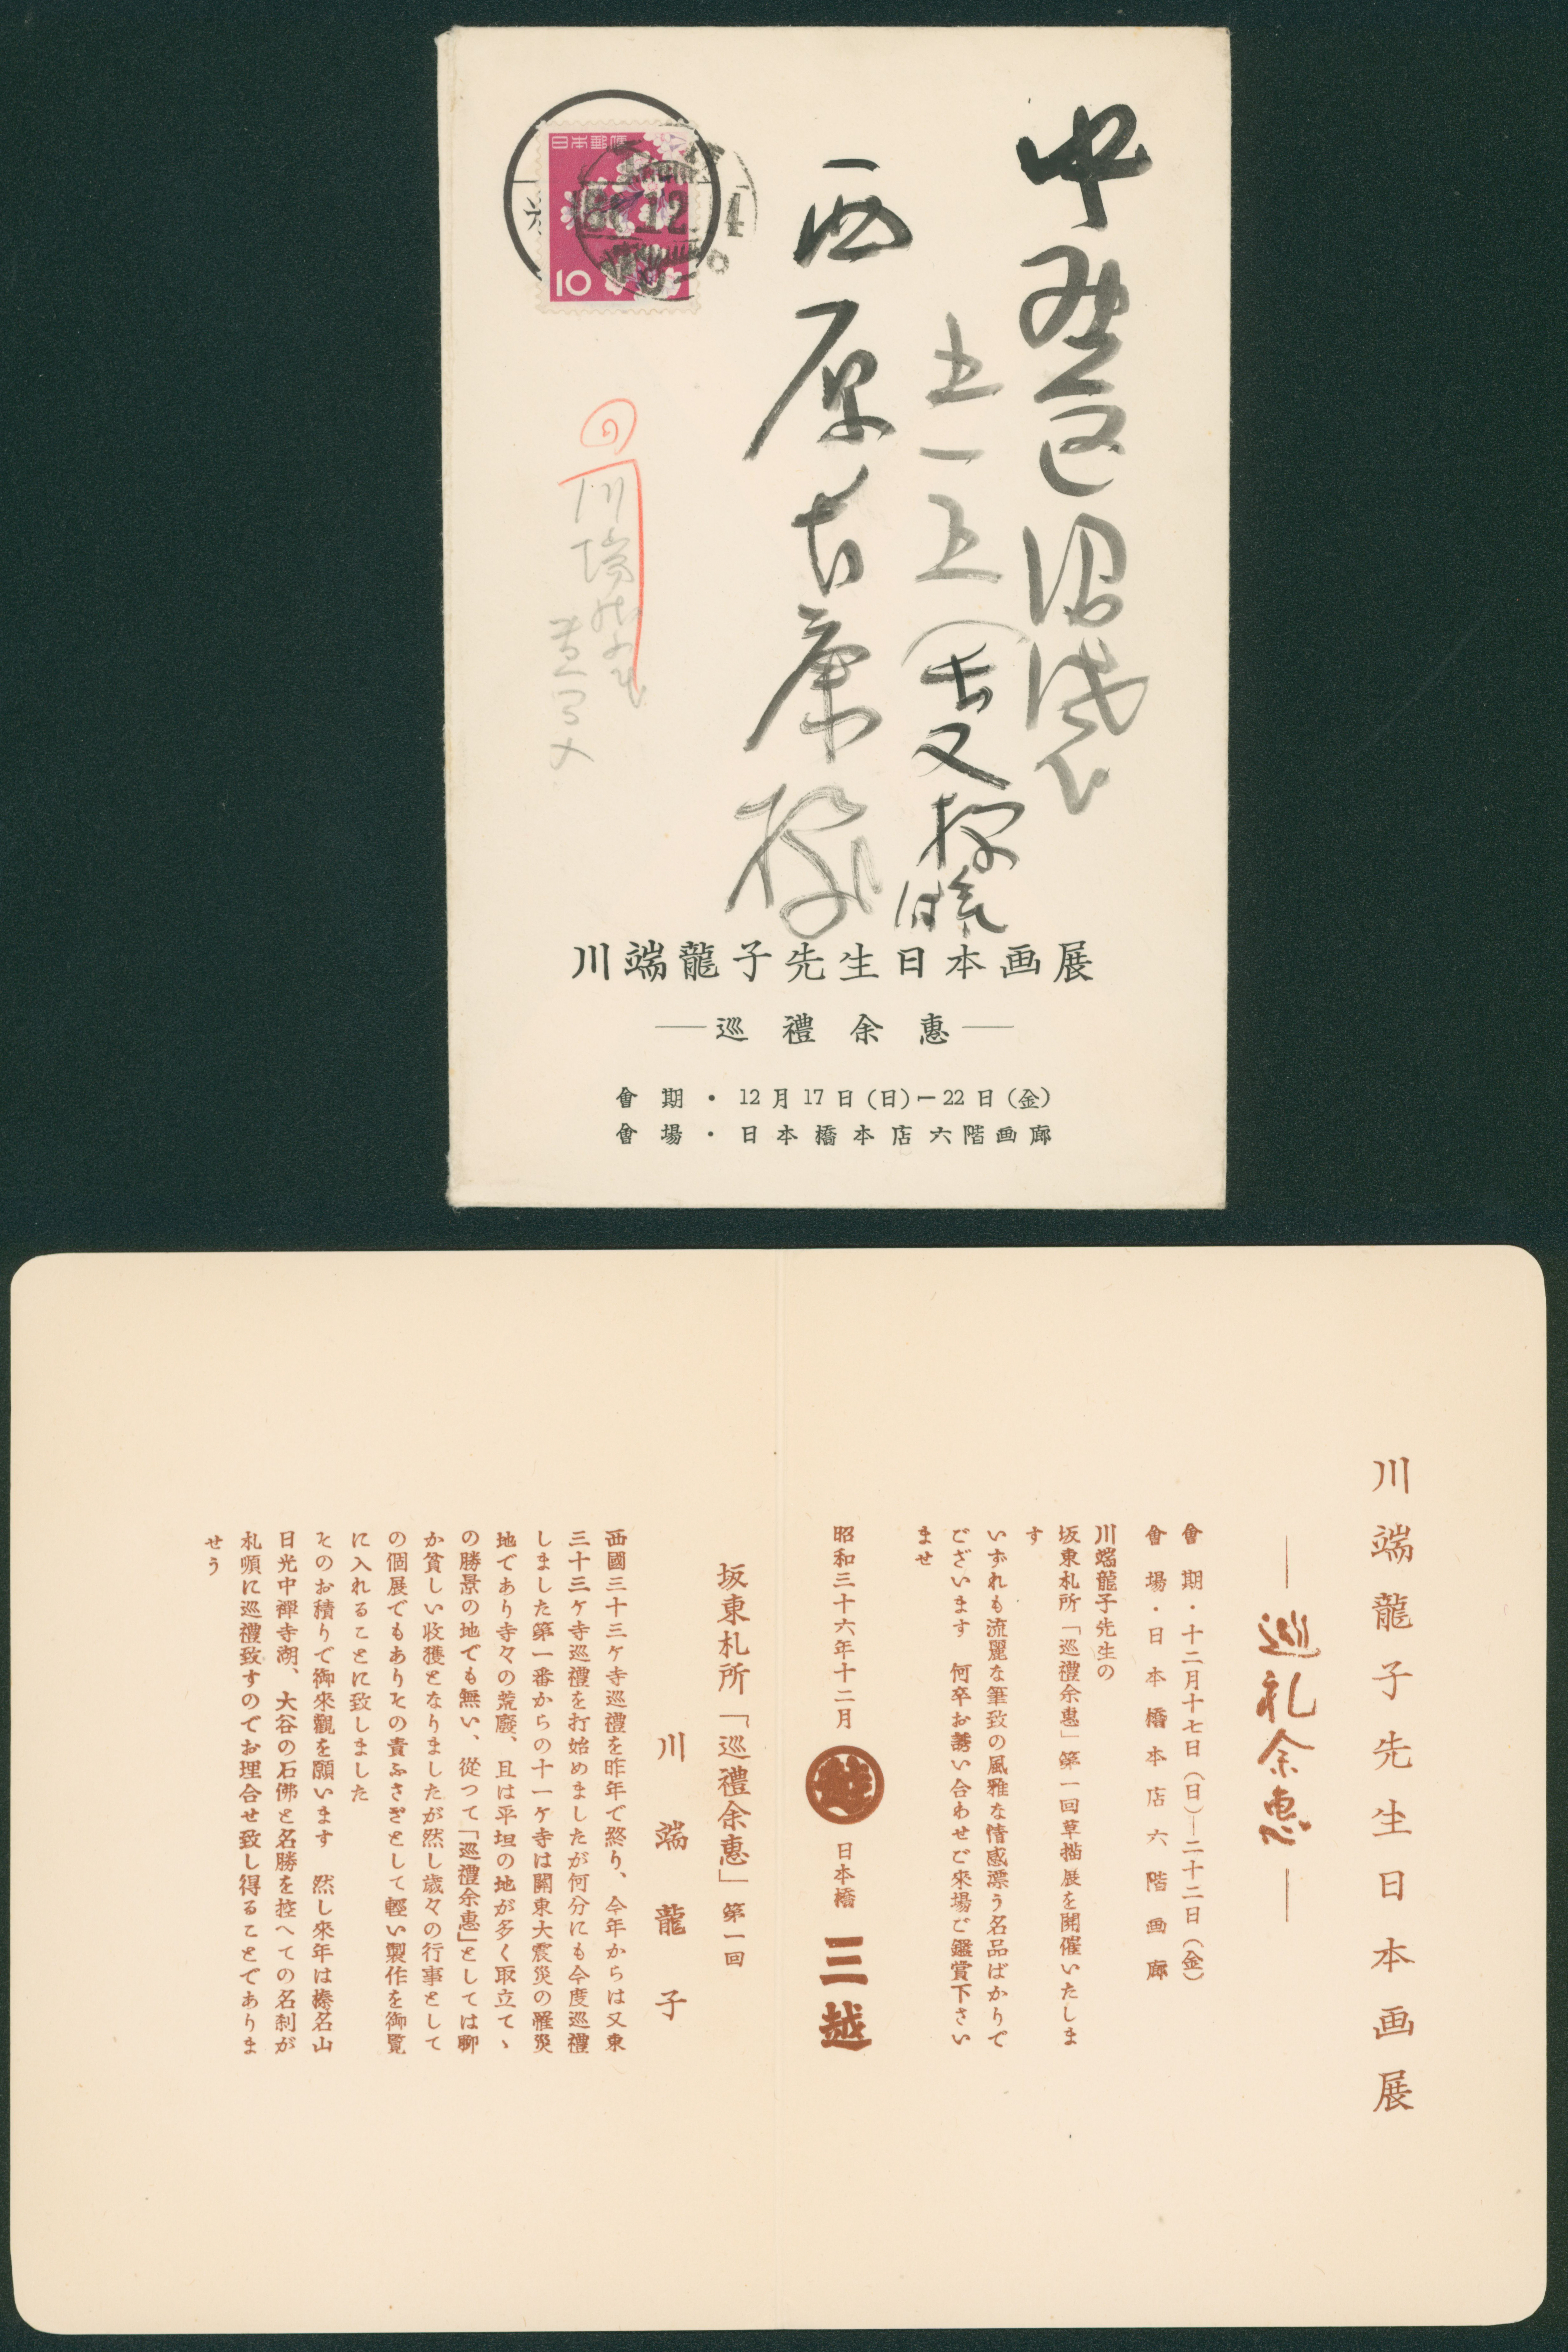 日本郵便
10
中野区沼袋
五ー五
西原吉廉様
川端龍子先生日本画展
―巡禮余惠―
會期・12月17日(日)ー22日(金)
會場・日本橋本店六階画廊
川端龍子先生日本画展
―巡礼余惠―
會期・十二月十七日(日)―二十二日(金)
會場・日本橋本店六階画廊
川端龍子先生の
坂東札所「巡禮余惠」第一回草描展を開催いたしま
す
いずれも流麗な筆致の風雅な情感漂う名品ばかりで
ございます 何卒お誘い合わせご来場ご鑑賞下さい
ませ
昭和三十六年十二月
越
日本橋 三越
坂東札所「巡禮余惠」第一回
川端龍子
西國三十三ヶ寺巡禮を昨年で終り、今年からは又東
三十三ヶ寺巡禮を打始めましたが何分にも今度巡禮
しました第一番からの十一ヶ寺は關東大震災の罹災
地であり寺々の荒廢、且は平坦の地が多く取立てゝ
の勝景の地でも無い、從つて「巡禮余惠」としては聊
か貧しい收獲となりましたが然し歳々の行事として
の個展でもありその責ふさぎとして輕い製作を御覧
に入れることに致しました
そのお積りで御來觀を願います 然し來年は榛名山
日光中禪寺湖、大谷の石佛と名勝を控へての名刹が
札順に巡禮致すのでお埋合せ致し得ることでありま
せう